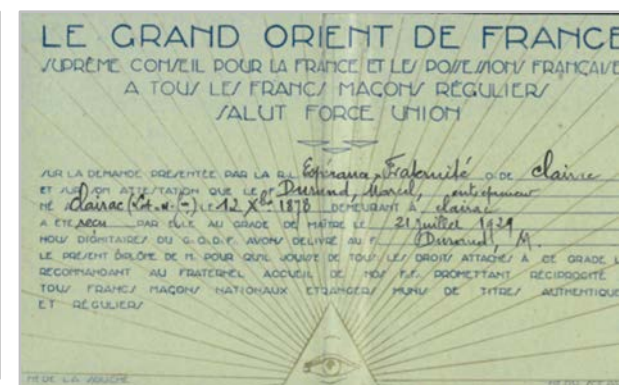 LE GRAND ORIENT DE FRANCE
SUPRÊME CONSEIL POUR LA FRANCE ET LES POSSESSIONS FRANÇAISE
A TOUS LES FRANCS MAÇONS RÉGULIERS
SALUT FORCE UNION
SUR LA DEMANDE PRÉSENTÉE PAR LA R.L. Espérance Fraternité O. DE Clairac
ET SUR SON ATTESTATION QUE LE F. Durand, Marcel, entrepreneur
NÉ à Clairac (Lot-&-G) LE 12 Xbre 1878 DEMEURANT À Clairac
A ÉTÉ reçu PAR ELLE AU GRADE DE MAÎTRE LE 21 juillet 1929
NOUS DIGNITAIRES DU G.O.D.F. AVONS DÉLIVRÉ AU F. Durand, M.
LE PRÉSENT DIPLÔME DE M. POUR QU'IL JOUISSE DE TOUS LES DROITS ATTACHÉS À CE GRADE L
RECOMMANDANT AU FRATERNEL ACCUEIL DE NOS F.F. PROMETTANT RÉCIPROCITÉ
TOUS FRANCS MAÇONS NATIONAUX ETRANGERS MUNIS DE TITRES AUTHENTIQUE
ET RÉGULIERS
N° DE LA SOUCHE